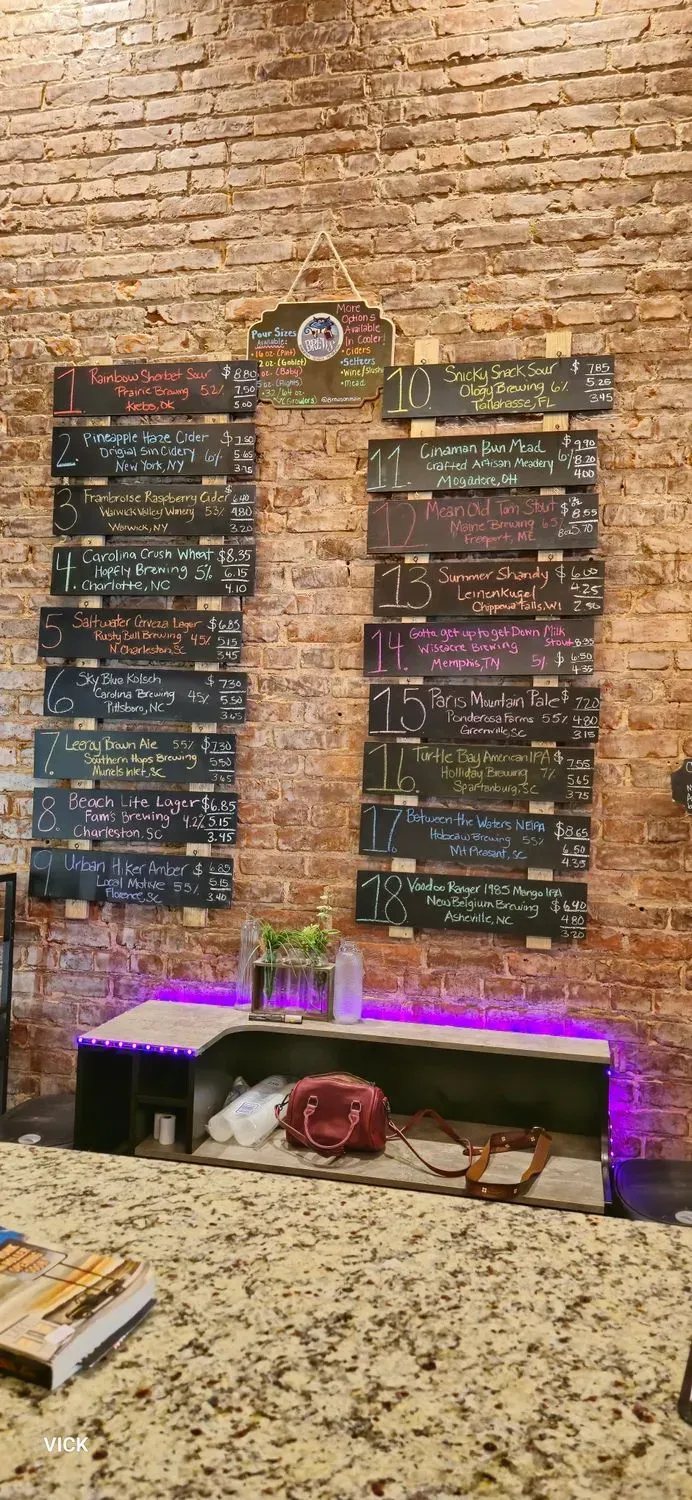 More
Options
Available
In Cooler!
Pour Sizes
Available:
BREWS
16 oz. (Pint)
2 oz. (Goblet)
oz. (Baby)
5 oz. (Flights)
32/64 oz.
(Growlers)
• Ciders
• Seltzers
• Wine/Slush
• Mead
@Brewsonmain
1. Rainbow Sherbet Sour $8.80
Prairie Brewing 5.2% 7.50
Krebs, OK 5.00
2. Pineapple Haze Cider $7.50
Original Sin Cidery 6% 5.65
New York, NY 3.75
3 Frambroise Raspberry Cider $6.40
Warwick Valley Winery 5.3% 4.80
Warwick, NY 3.20
4. Carolina Crush Wheat $8.35
Hopfly Brewing 5% 6.15
Charlotte, NC 4.10
5 Saltwater Cerveza Lager $6.85
Rusty Bull Brewing 4.5% 5.15
N Charleston, SC 3.45
6 Sky Blue Kolsch $7.30
Carolina Brewing 4.5% 5.50
Pittsboro, NC 3.65
7. Leeroy Brown Ale 5.5% $7.30
Southern Hops Brewing 5.50
Murrels Inlet, SC 3.65
8. Beach Lite Lager $6.85
Fam's Brewing 4.2% 5.15
Charleston, SC 3.45
9 Urban Hiker Amber $6.85
Local Motive 5.5% 5.15
Florence, SC 3.40
10 Snicky Snack Sour $7.85
Ology Brewing 6% 5.25
Tallahasse, FL 3.45
11. Cinaman Bun Mead $9.90
Crafted Artisan Meadery 6% 8.20
Mogadore, OH 4.00
12 Mean Old Tom Stout $
Maine Brewing 6.5% 8.55
Freeport, ME 5.70
13 Summer Shandy $6.00
Leinenkugel 4.25
Chippewa Falls, WI
14. Gotta get up to get Down Milk
Stout 8.35
Wiseacre Brewing $6.50
Memphis, TN 5% 4.35
15 Paris Mountain Pale $7.20
Ponderosa Farms 5.5% 4.80
Greenville, SC 3.15
16. Turtle Bay American IPA $7.55
Holliday Brewing 7% 5.65
Spartanburg, SC 3.75
17. Between the Waters NEIPA $8.65
Hobcaw Brewing 5.5% 6.50
Mt Pleasant, SC 4.35
18 Voodoo Ranger 1985 Mango IPA
New Belgium Brewing $6.40
Asheville, NC 4.80
3.20
VICK